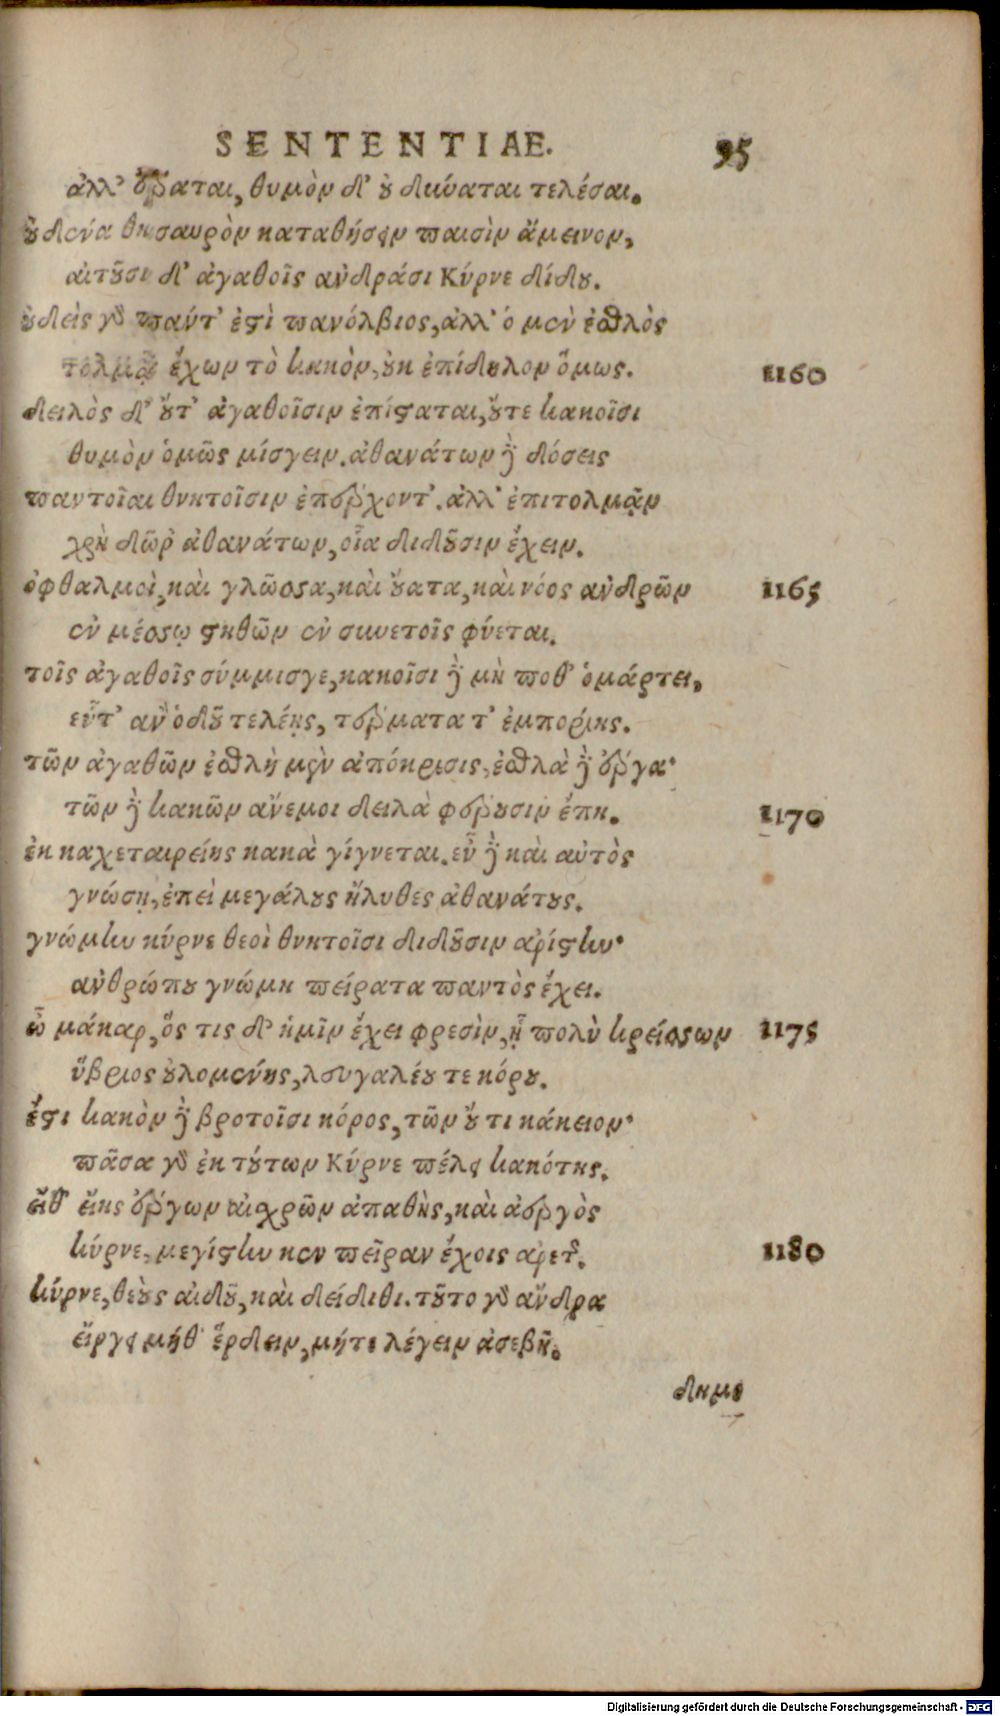 SENTENTIAE. 95
ἀλλ' ἔραται, θυμὸν δ' οὐ δύναται τελέσαι.
οὐδένα θησαυρὸν καταθήσειν παισὶν ἄμεινον,
αἰτοῦσι δ' ἀγαθοῖς ἀνδράσι Κύρνε δίδου.
οὐδεὶς γὰρ πάντ' ἐστὶ πανόλβιος, ἀλλ' ὁ μὲν ἐσθλὸς
τολμᾷ ἔχων τὸ κακὸν, οὐκ ἐπίδηλον ὅμως. 1160
δειλὸς δ' οὔτ' ἀγαθοῖσιν ἐπίσταται, οὔτε κακοῖσι
θυμὸν ὁμῶς μίσγειν. ἀθανάτων δὲ δόσεις
παντοῖαι θνητοῖσιν ἐπέρχοντ'. ἀλλ' ἐπιτολμᾷν
χρὴ δῶρ' ἀθανάτων, οἷα διδοῦσιν ἔχειν.
ὀφθαλμοὶ, καὶ γλῶσσα, καὶ οὔατα, καὶ νόος ἀνδρῶν 1165
ἐν μέσσῳ στηθῶν ἐν συνετοῖς φύεται.
τοῖς ἀγαθοῖς σύμμισγε, κακοῖσι δὲ μὴ ποθ' ὁμάρτει,
εὖτ' ἂν ὁδοῦ τελέῃς, τέρματα τ' ἐμπορίης.
τῶν ἀγαθῶν ἐσθλὴ μὲν ἀπόκρισις, ἐσθλὰ δὲ ἔργα·
τῶν δὲ κακῶν ἄνεμοι δειλὰ φέρουσιν ἔπη. 1170
ἐκ καχεταιρείης κακὰ γίγνεται. εὖ δὲ καὶ αὐτὸς
γνώσῃ, ἐπεὶ μεγάλους ἤλυθες ἀθανάτους.
γνώμην κύρνε θεοὶ θνητοῖσι διδοῦσιν ἀρίστην·
ἀνθρώπου γνώμη πείρατα παντὸς ἔχει.
ὦ μάκαρ, ὅς τις δ' ἡμῖν ἔχει φρεσὶν, ᾗ πολὺ κρείσσων 1175
ὕβριος οὐλομένης, λευγαλέου τε κόρου.
ἔστι κακὸν δὲ βροτοῖσι κόρος, τῶν οὔ τι κάκειον·
πᾶσα γὰρ ἐκ τούτων Κύρνε πέλει κακότης.
εἴθ' εἴης ἔργων αἰσχρῶν ἀπαθὴς, καὶ ἀεργὸς
κύρνε, μεγίστην κεν πεῖραν ἔχοις ἀρετῆς. 1180
κύρνε, θεοὺς αἰδοῦ, καὶ δείδιθι. τοῦτο γὰρ ἄνδρα
εἴργει μήθ' ἔρδειν, μήτε λέγειν ἀσεβῆ.
δημο
Digitalisierung gefördert durch die Deutsche Forschungsgemeinschaft - DFG